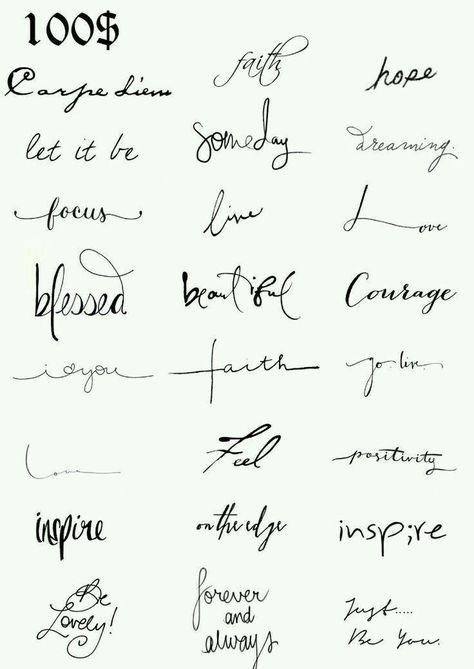 100$
Carpe diem
faith
hope
let it be
someday
dreaming.
focus
live
Love
blessed
beautiful
Courage
i♡you
faith
go. live.
Love
Feel
positivity
inspire
on the edge
insp;re
Be
Lovely!
forever
and
always
Just.....
Be You.